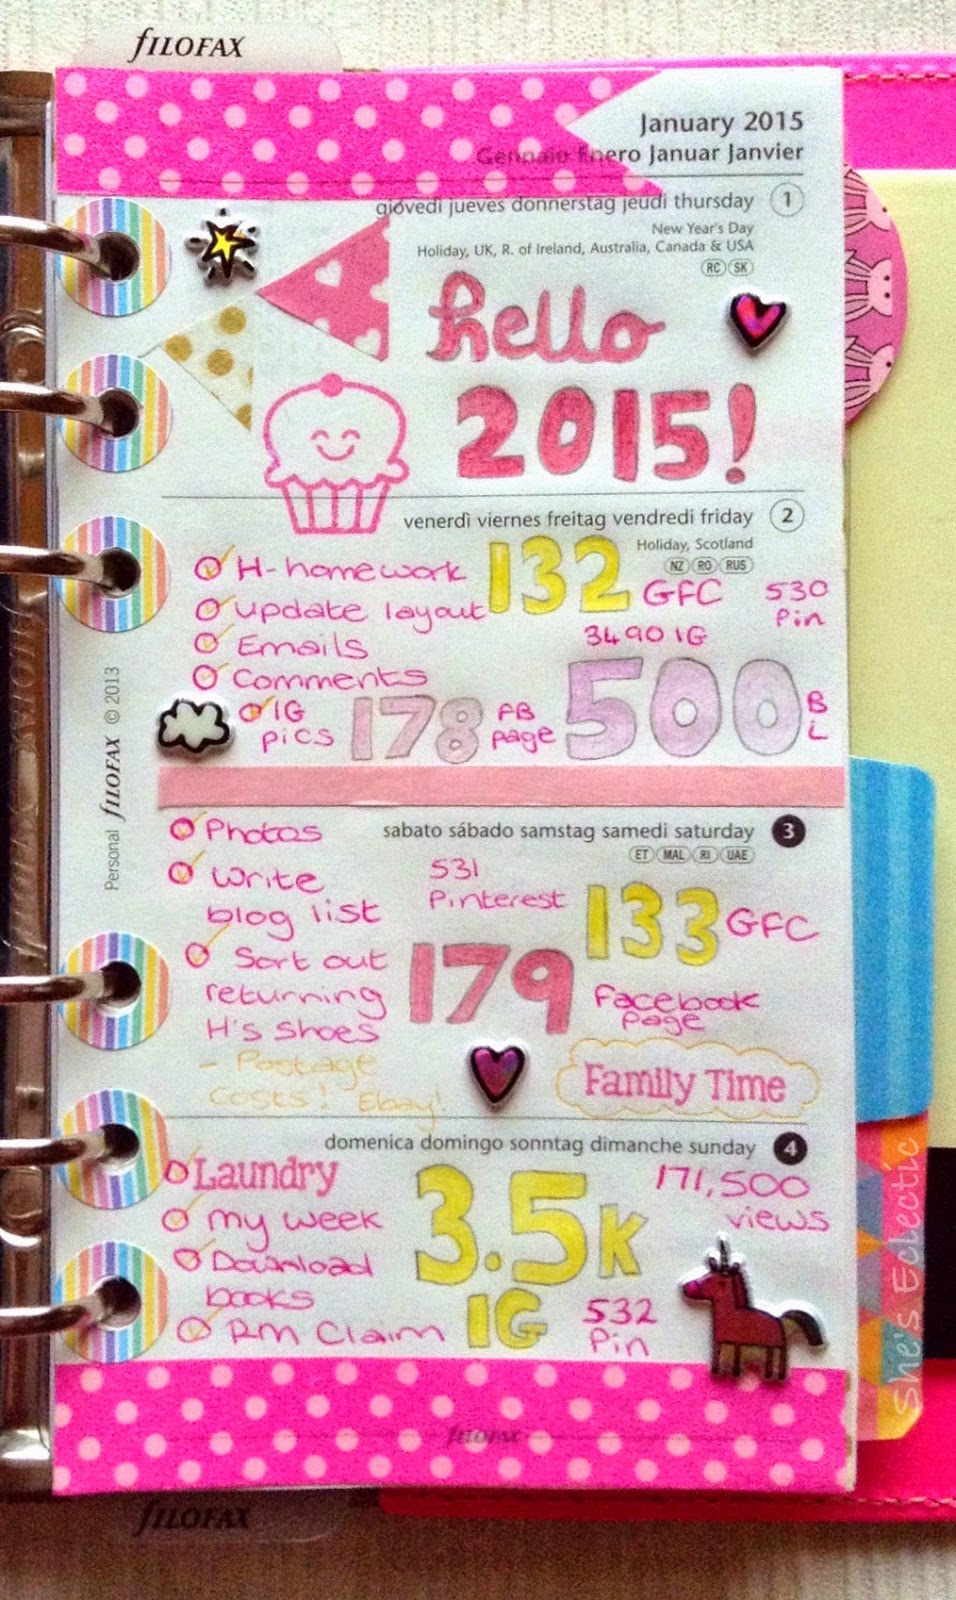 fILOFAX
January 2015
Gennaio Enero Januar Janvier
giovedì jueves donnerstag jeudi thursday 1
New Year's Day
Holiday, UK, R. of Ireland, Australia, Canada & USA
RC SK
hello
2015!
venerdì viernes freitag vendredi friday 2
Holiday, Scotland
NZ RO RUS
H-homework
update layout
Emails
Comments
IG
pics
132 GFC
530
Pin
3490 IG
178 FB
page
500 B
L
Personal fILOFAX © 2013
sabato sábado samstag samedi saturday 3
ET MAL RI UAE
Photos
Write
blog list
Sort out
returning
H's shoes
- Postage
costs! Ebay!
531
Pinterest
133 GFC
179 Facebook
page
Family Time
domenica domingo sonntag dimanche sunday 4
Laundry
my week
Download
books
RM Claim
3.5K
IG
171,500
views
532
Pin
She's Eclectic
fILOFAX
fILOFAX